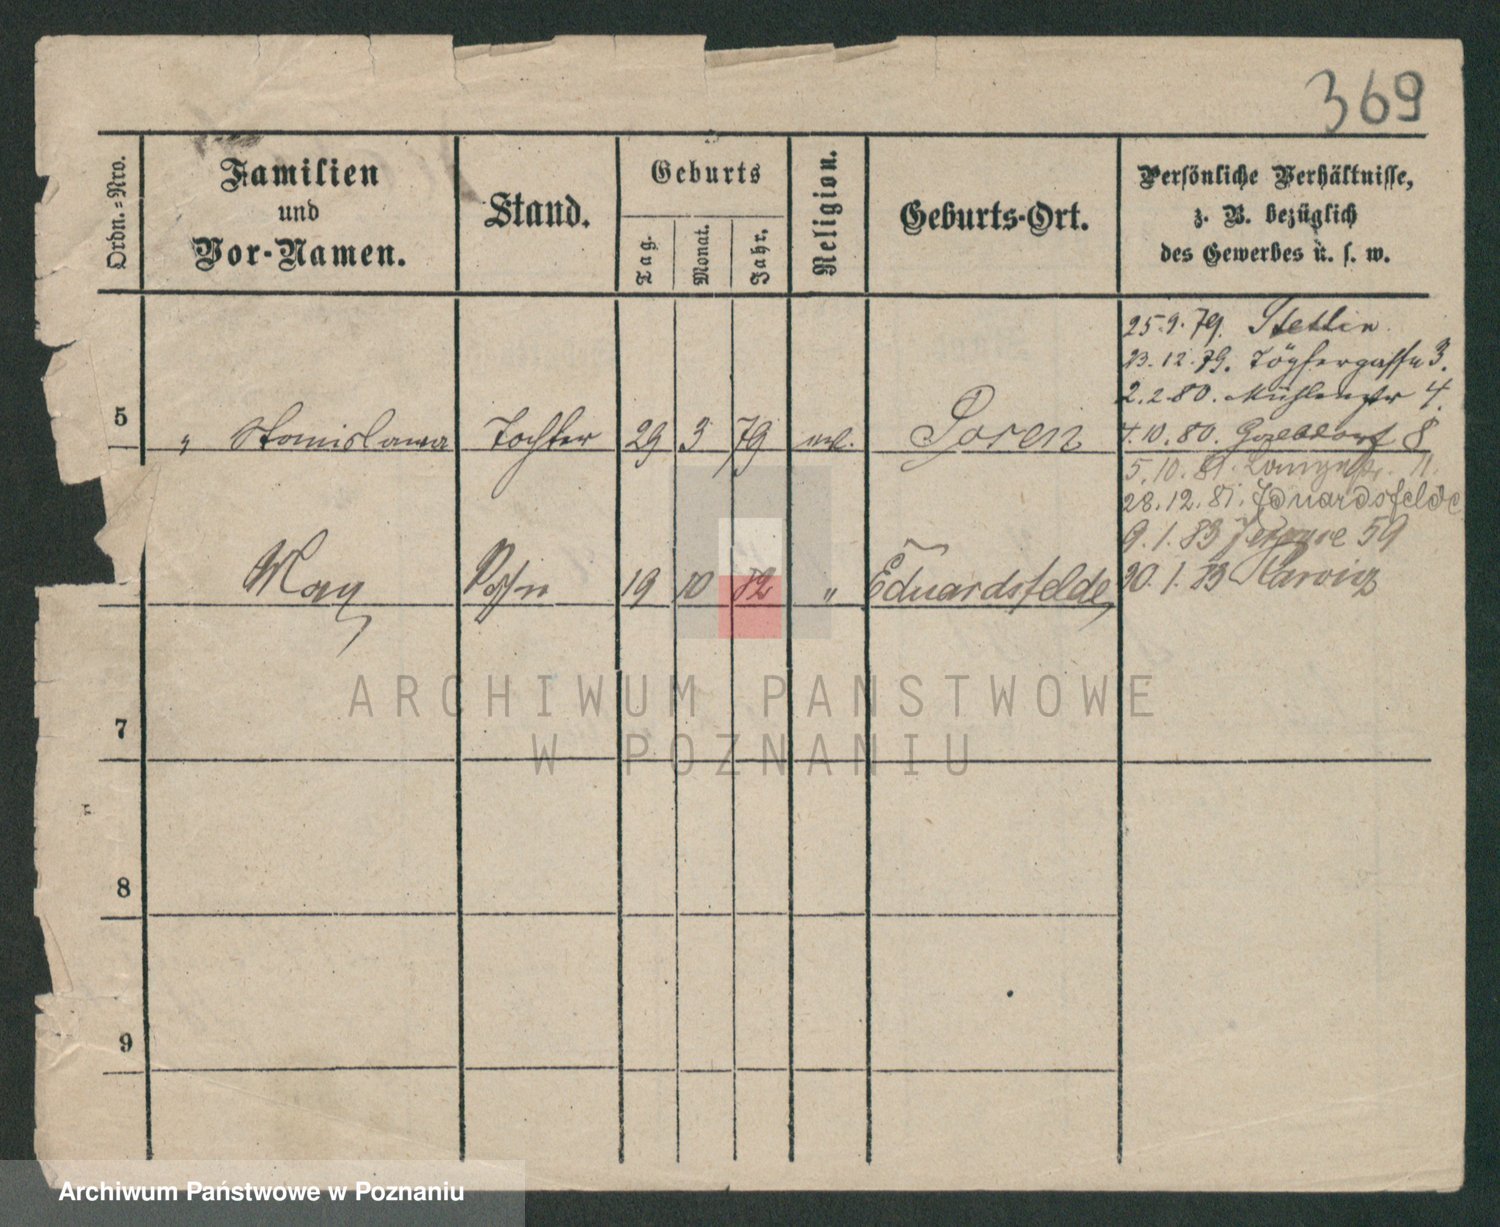 369
Ordn.-Nro.
Familien
und
Vor-Namen.
Stand.
Geburts
Tag.
Monat.
Jahr.
Religion.
Geburts-Ort.
Persönliche Verhältnisse,
z. B. bezüglich
des Gewerbes u. s. w.
25.9.79. Stettin
23.12.79. Töpfergasse 3.
2.2.80. Mühlenstr 4.
5 " Stanislawa Tochter 29 3 79 Posen
4.10.80. 8
5.10.81. Langestr. 11.
28.12.81. Eduardsfelde
9.1.83 59
Max Sohn 19 10 82 " Eduardsfelde
30.1.83
7
8
9
ARCHIWUM PAŃSTWOWE
W POZNANIU
Archiwum Państwowe w Poznaniu